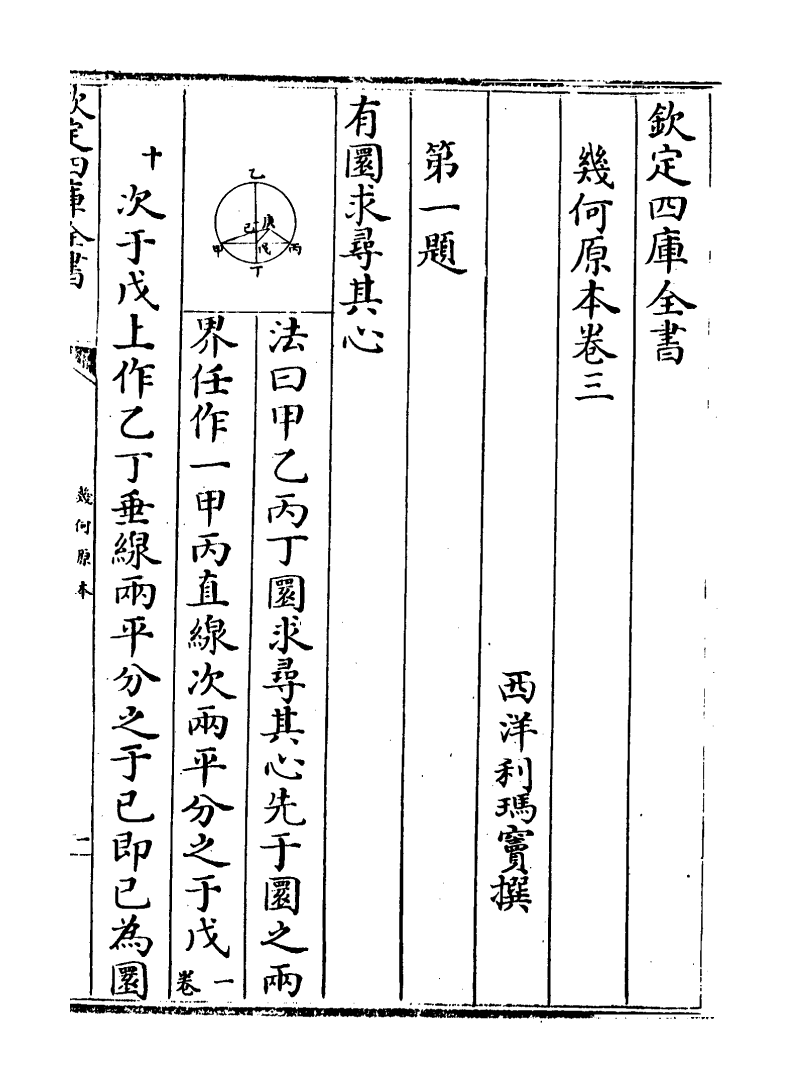 欽定四庫全書
幾何原本卷三
西洋利瑪竇撰
第一題
有圜求尋其心
乙
庚
己
甲
戊
丙
丁
法曰甲乙丙丁圜求尋其心先于圜之兩
界任作一甲丙直線次兩平分之于戊一卷
十次于戊上作乙丁垂線兩平分之于已即已為圜
欽定四庫全書
幾何原本
一